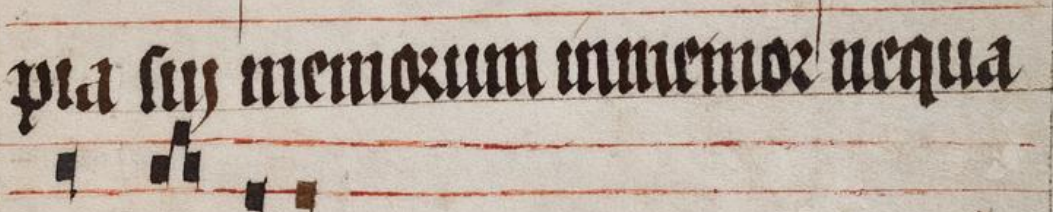 pia suij memorum inmemor nequa